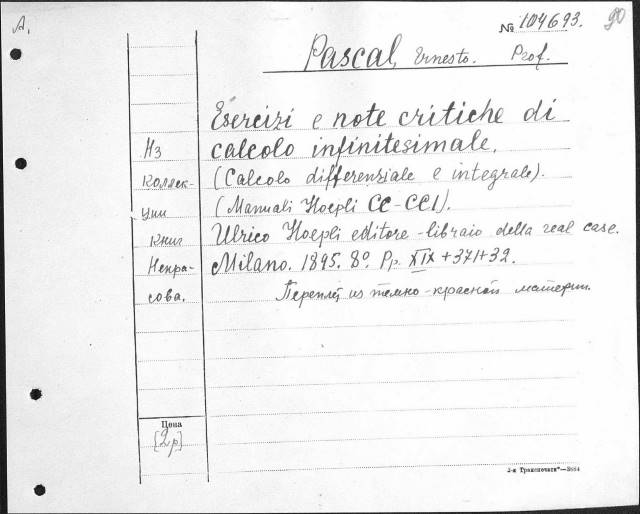 A.
№ 104693.
90
Pascal, Ernesto. Prof.
Esercizi e note critiche di
calcolo infinitesimale.
(Calcolo differenziale e integrale).
(Manuali Hoepli CC-CCI).
Ulrico Hoepli editore-libraio della real case.
Milano. 1895. 8º. Pp. XIX + 371 + 32.
Переплет из темно-красной материи.
Из
коллек-
ции
книг
Некра-
сова.
Цена
[2 р]
2-я Транспечать"—3664